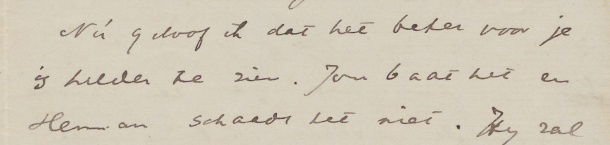 Nú geloof ik dat het beter voor je
is helder te zien. Jou baat het en
Herman schaadt het niet. Hy zal